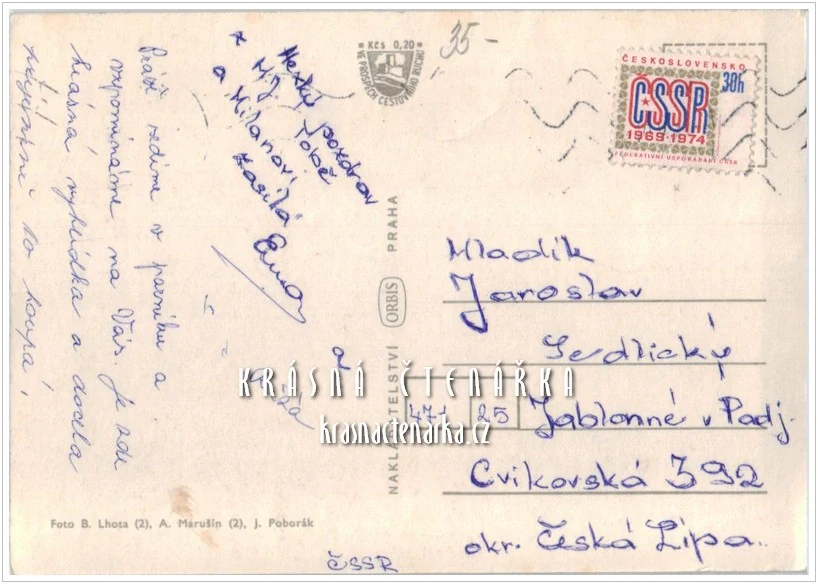 Kčs 0,20
VE PROSPĚCH CESTOVNÍHO RUCHU
35-
ČESKOSLOVENSKO
30h
ČSSR
1969-1974
FEDERATIVNÍ USPOŘÁDÁNÍ ČSSR
Hezký pozdrav
z MJ Tobě
a Milanovi
zasílá
a
Právě sedíme v parníku a
vzpomínáme na Vás. Je zde
krásná vyhlídka a docela
příjemně to houpá!
NAKLADATELSTVÍ ORBIS PRAHA
Mladík
Jaroslav
Sedlický
471 25 Jablonné v Podj.
Cvikovská 392
okr. Česká Lípa.
ČSSR
KRÁSNÁ ČTENÁŘKA
krasnactenarka.cz
Foto B. Lhota (2), A. Marušin (2), J. Poborák